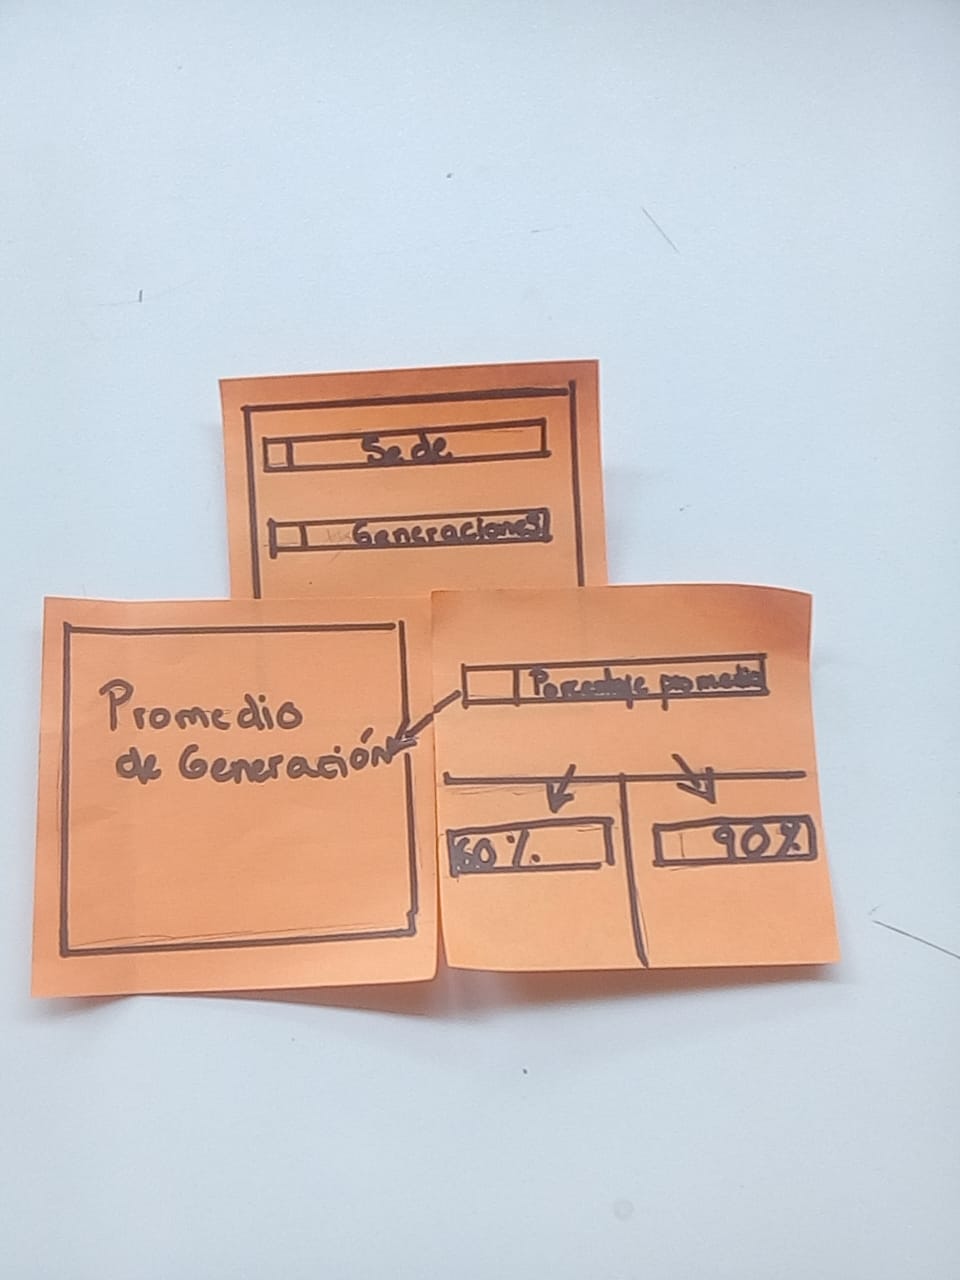 Sede
Generaciones
Promedio
de Generación
Porcentaje promedio
60%
90%